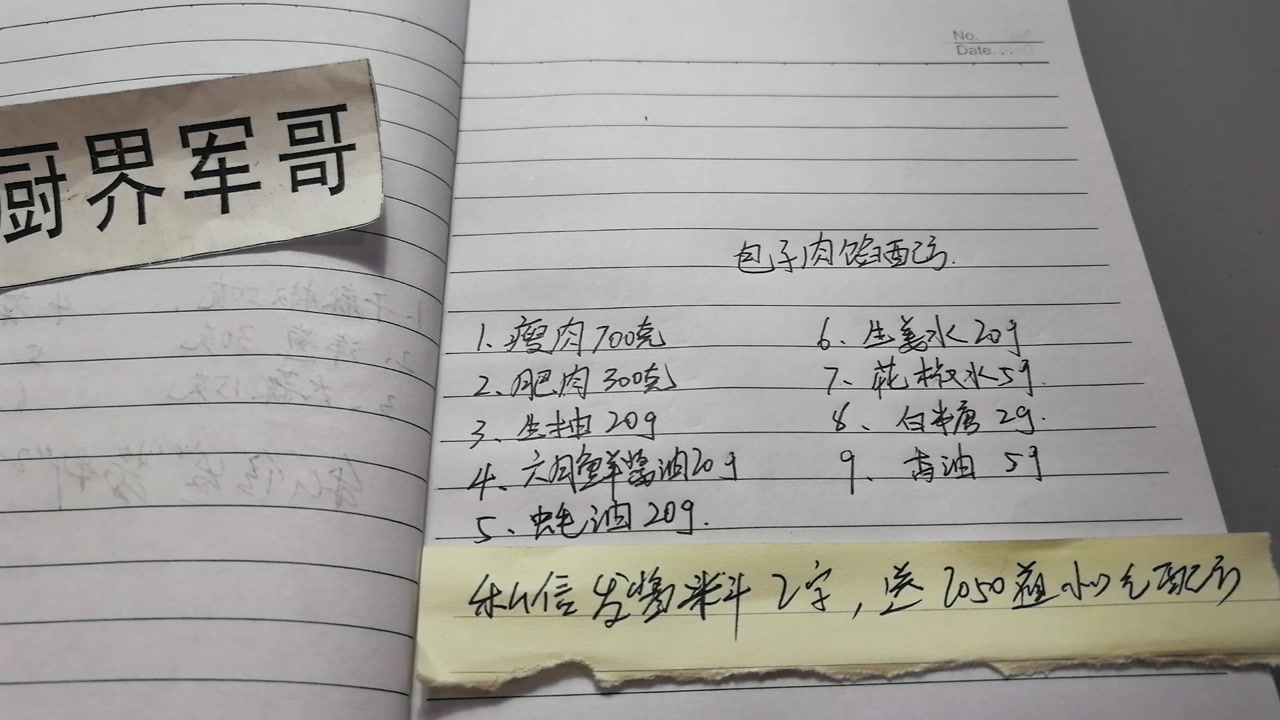 厨界军哥
No.
Date...
包子肉馅配方.
1、瘦肉700克
2、肥肉300克
3、生抽20g
4、六月鲜酱油20g
5、蚝油20g.
6、生姜水20g
7、花椒水5g.
8、白糖2g.
9、香油 5g
私信发酱料2字，送2050道小吃配方